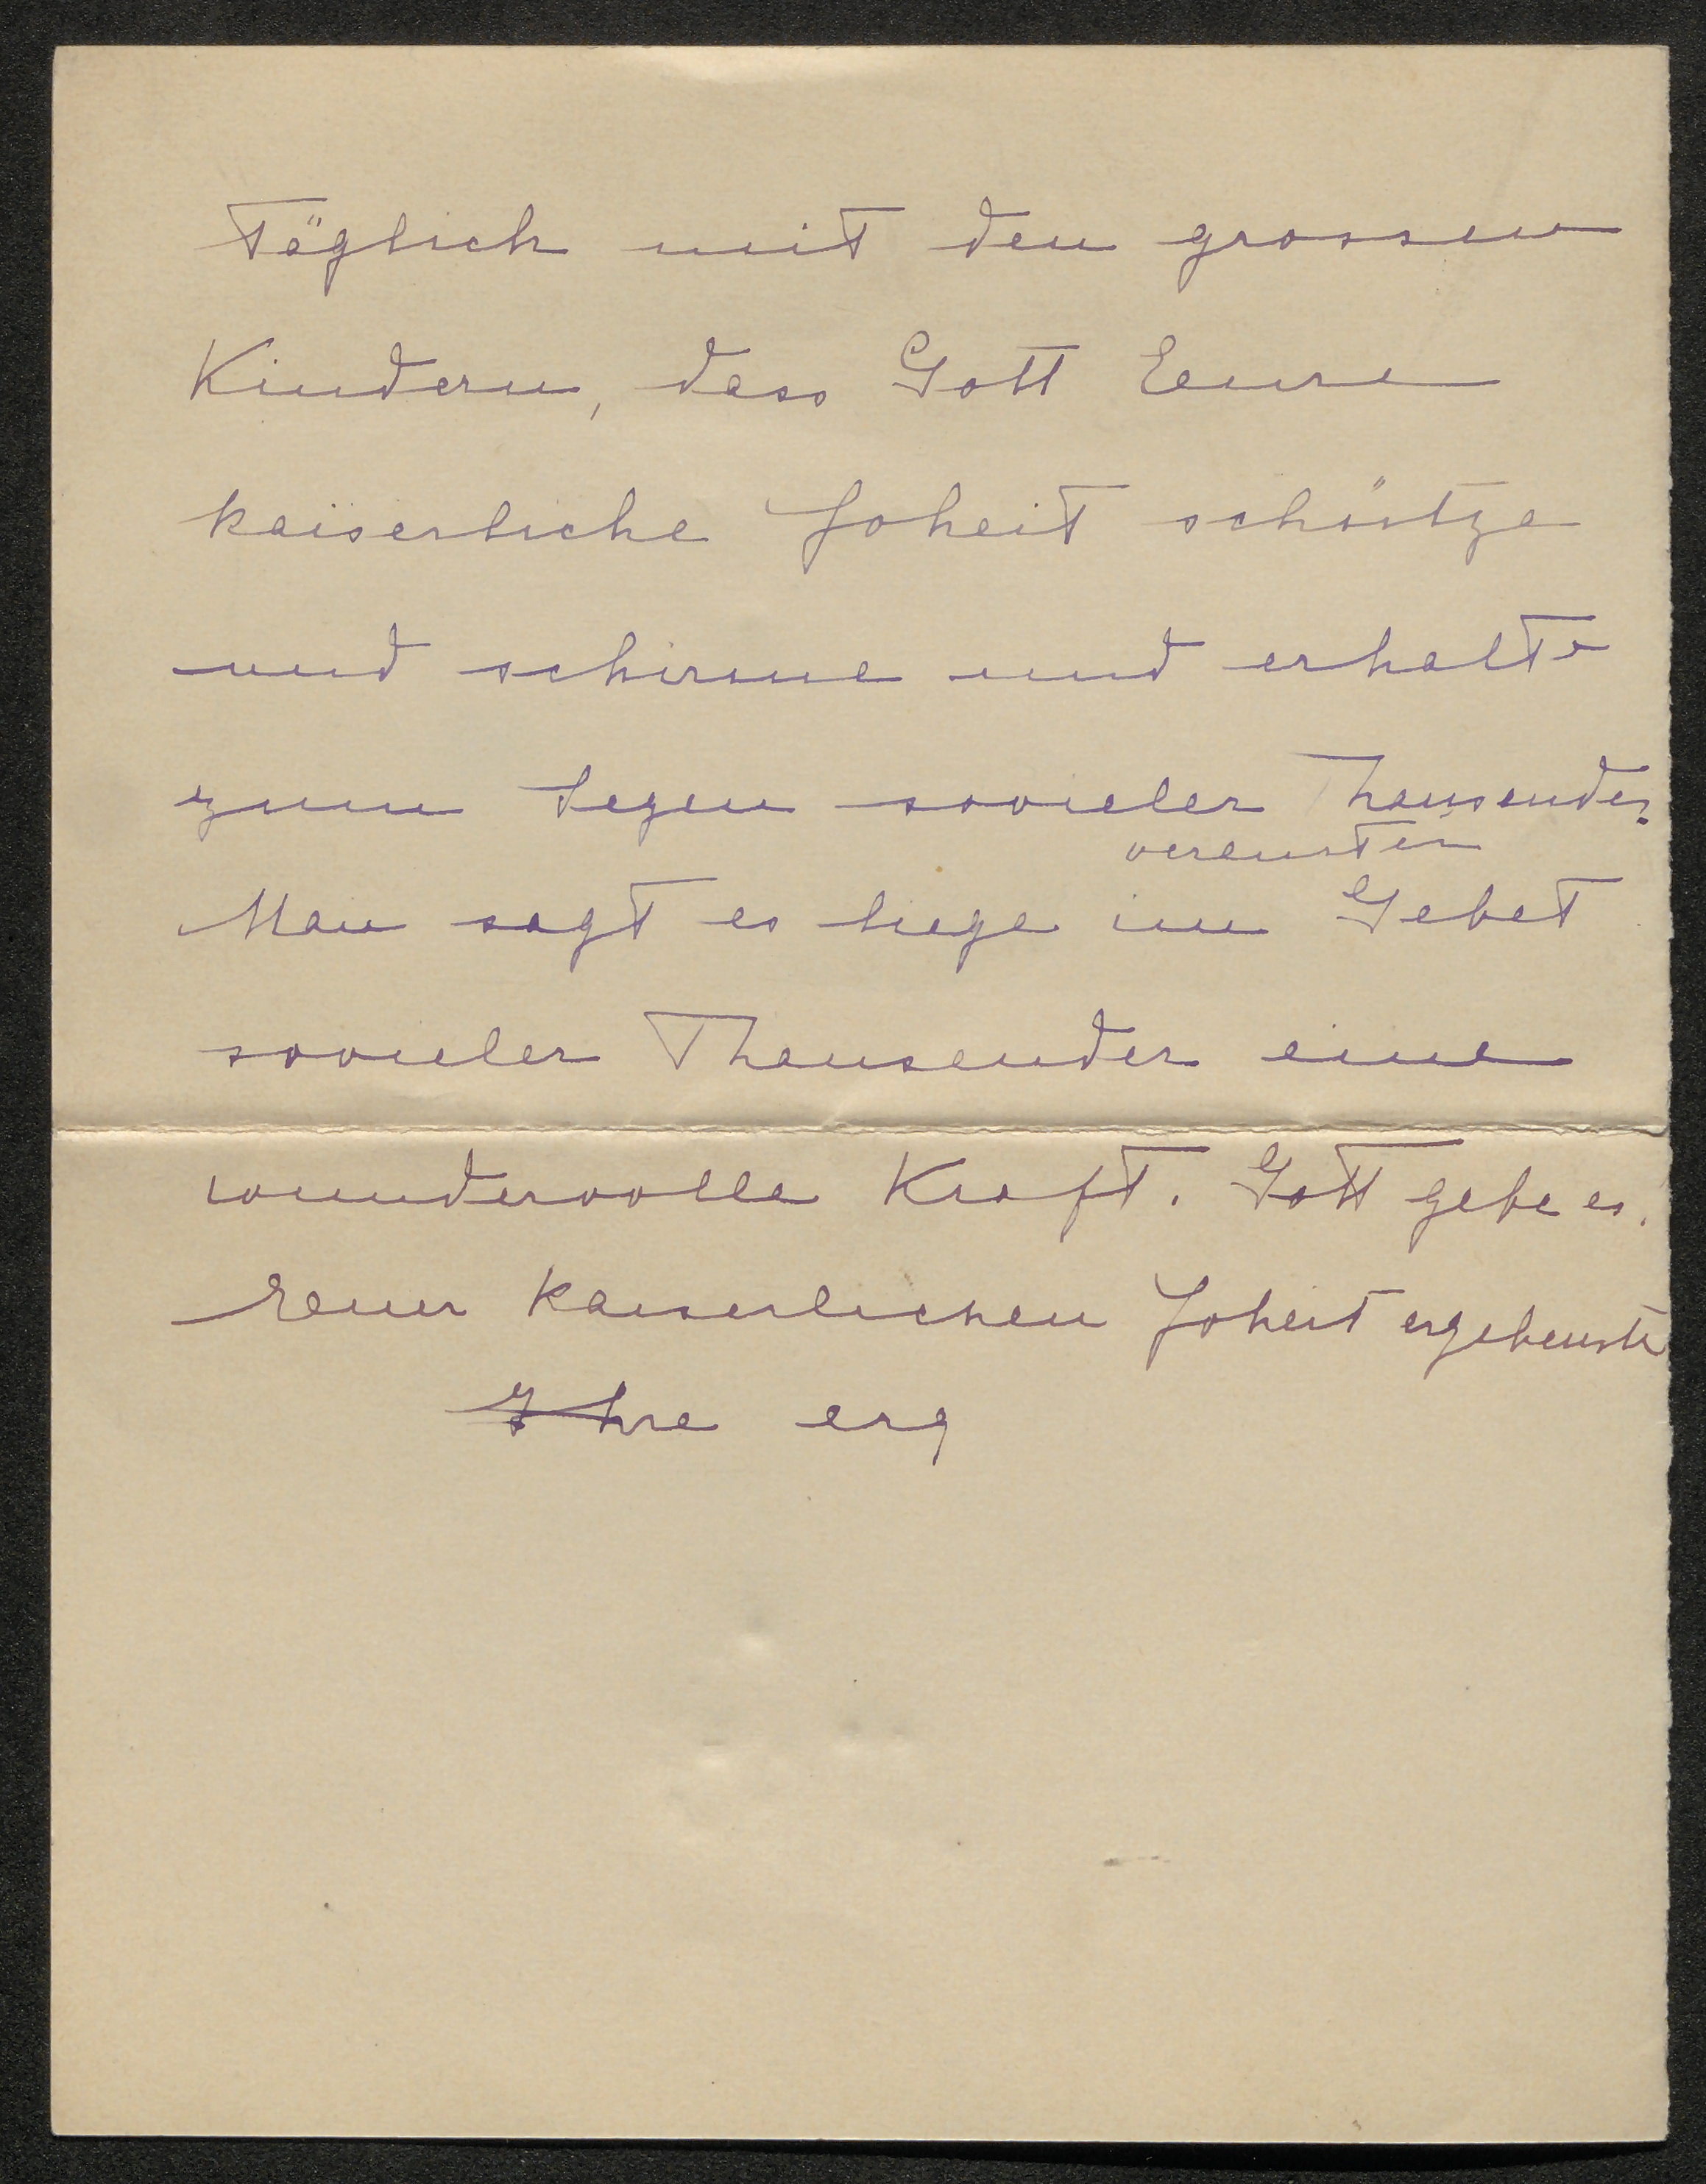 täglich mit den grossen
Kindern, dass Gott Eure
kaiserliche Hoheit schütze
und schirme und erhalte
zum Segen sovieler Thausender.
vereinten
Man sagt es liege im Gebet
sovieler Thausender eine
wundervolle Kraft. Gott gebe es.
Euer kaiserlichen Hoheit ergebenste
Ihre erg